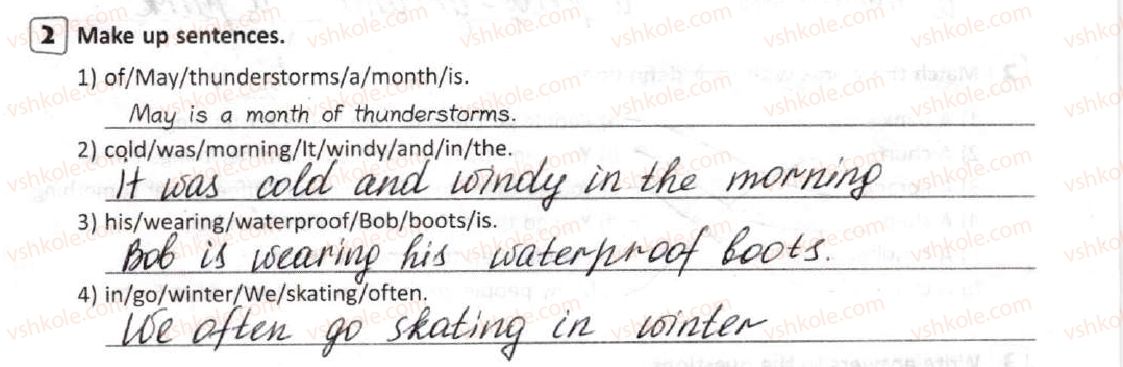 2 Make up sentences.
1) of/May/thunderstorms/a/month/is.
May is a month of thunderstorms.
2) cold/was/morning/It/windy/and/in/the.
It was cold and windy in the morning
3) his/wearing/waterproof/Bob/boots/is.
Bob is wearing his waterproof boots.
4) in/go/winter/We/skating/often.
We often go skating in winter